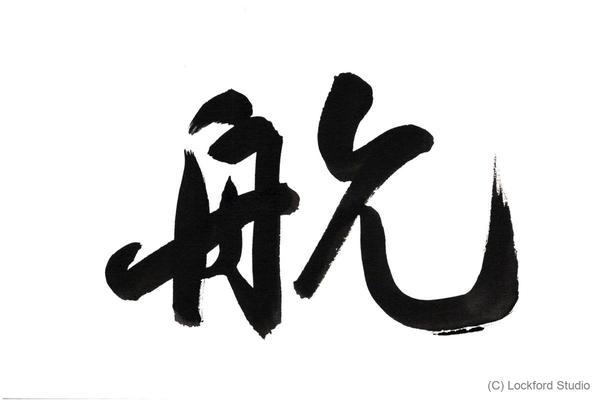 航
(C) Lockford Studio